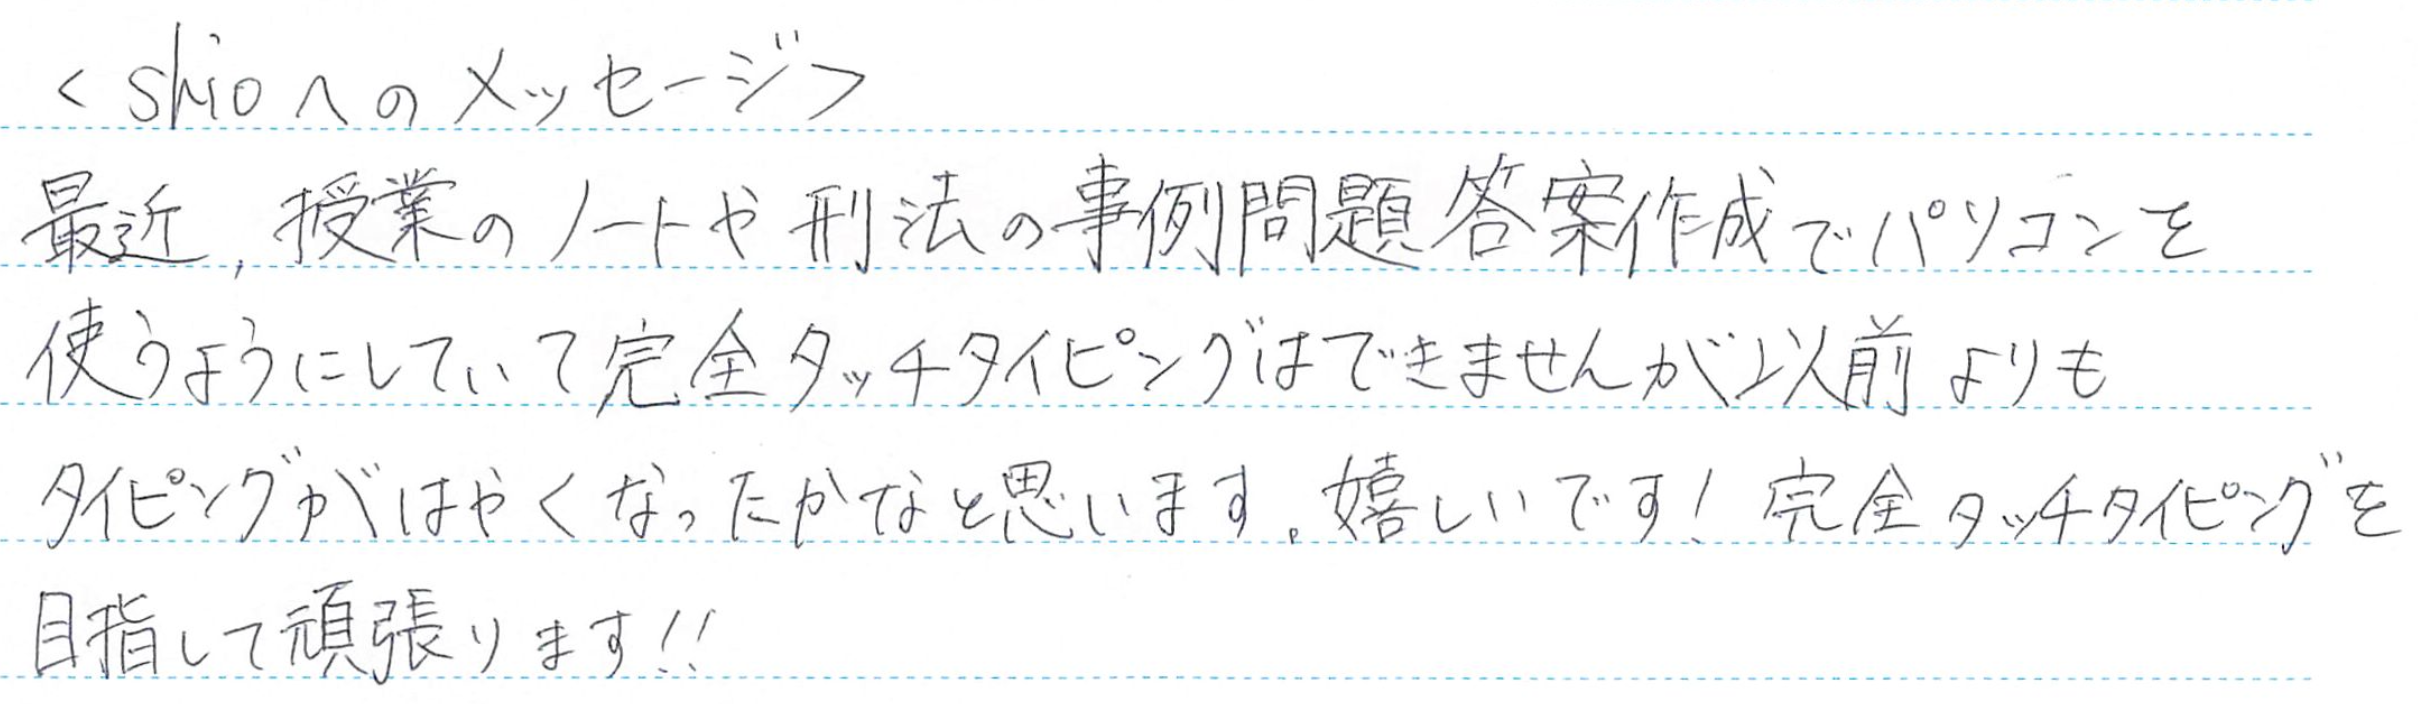 <shioへのメッセージ>
最近,授業のノートや刑法の事例問題答案作成でパソコンを
使うようにしていて完全タッチタイピングはできませんが以前よりも
タイピングがはやくなったかなと思います。嬉しいです!完全タッチタイピングを
目指して頑張ります!!